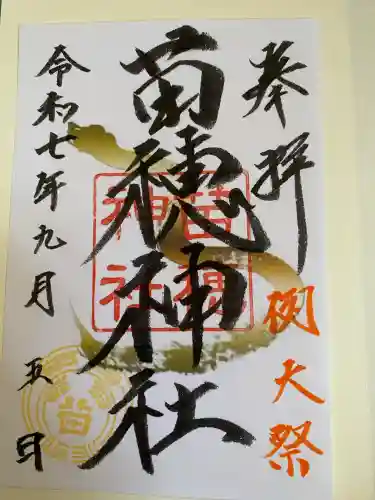 奉拝
例大祭
苗穂神社
苗穂
神社
令和七年九月五日